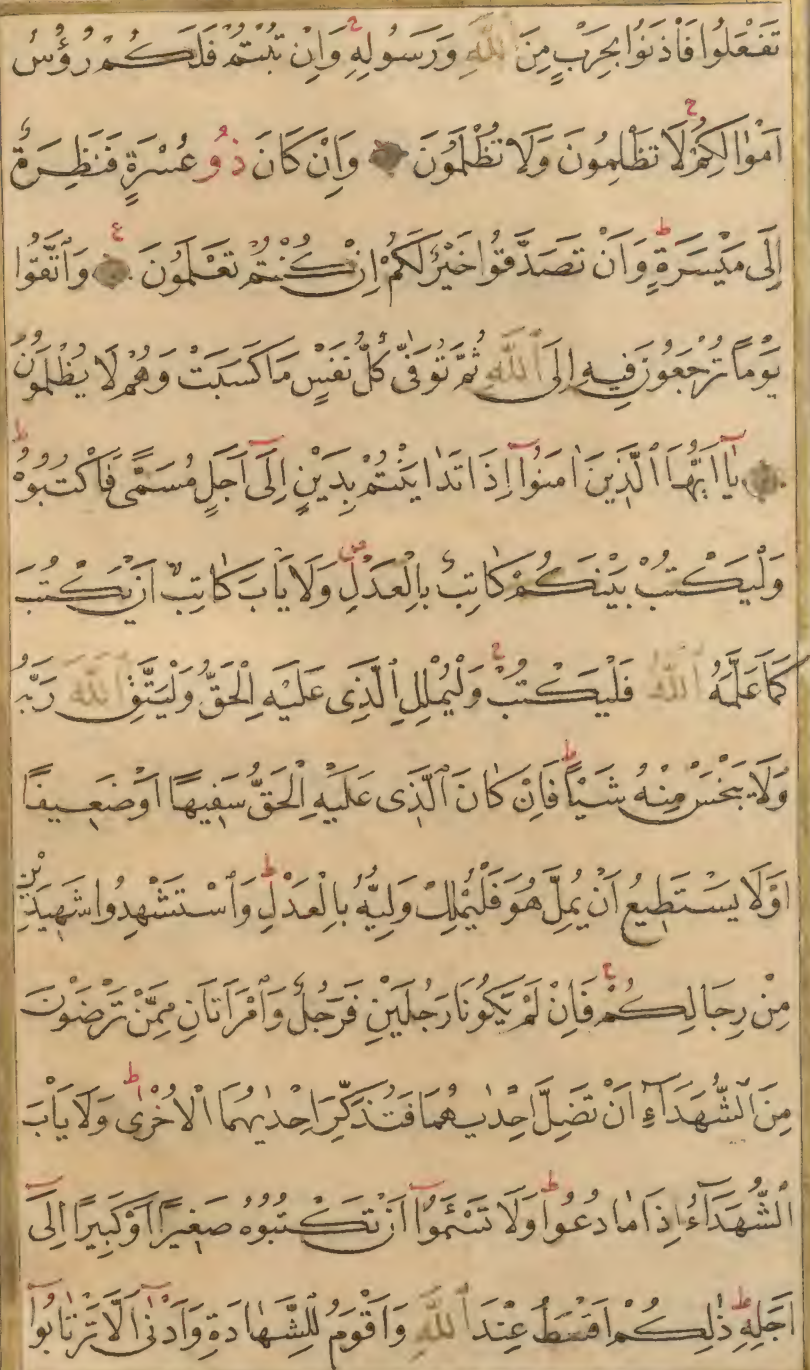 تَفْعَلُوا فَأْذَنُوا بِحَرْبٍ مِنَ اللّٰهِ وَرَسُولِهِ ۚ وَاِنْ تُبْتُمْ فَلَكُمْ رُؤُسُ
اَمْوَالِكُمْ ۚ لَا تَظْلِمُونَ وَلَا تُظْلَمُونَ وَاِنْ كَانَ ذُو عُسْرَةٍ فَنَظِرَةٌ
اِلٰى مَيْسَرَةٍ ؕ وَاَنْ تَصَدَّقُوا خَيْرٌ لَكُمْ اِنْ كُنْتُمْ تَعْلَمُونَ ع وَاتَّقُوا
يَوْمًا تُرْجَعُونَ فِيهِ اِلَى اللّٰهِ ثُمَّ تُوَفّٰى كُلُّ نَفْسٍ مَا كَسَبَتْ وَهُمْ لَا يُظْلَمُونَ
يَٓا اَيُّهَا الَّذِينَ اٰمَنُٓوا اِذَا تَدَايَنْتُمْ بِدَيْنٍ اِلٰٓى اَجَلٍ مُسَمًّى فَاكْتُبُوهُ ؕ
وَلْيَكْتُبْ بَيْنَكُمْ كَاتِبٌ بِالْعَدْلِ ص وَلَا يَأْبَ كَاتِبٌ اَنْ يَكْتُبَ
كَمَا عَلَّمَهُ اللّٰهُ فَلْيَكْتُبْ ۚ وَلْيُمْلِلِ الَّذِى عَلَيْهِ الْحَقُّ وَلْيَتَّقِ اللّٰهَ رَبَّهُ
وَلَا يَبْخَسْ مِنْهُ شَيْئًا ؕ فَاِنْ كَانَ الَّذِى عَلَيْهِ الْحَقُّ سَفِيهًا اَوْ ضَعِيفًا
اَوْ لَا يَسْتَطِيعُ اَنْ يُمِلَّ هُوَ فَلْيُمْلِلْ وَلِيُّهُ بِالْعَدْلِ ؕ وَاسْتَشْهِدُوا شَهِيدَيْنِ
مِنْ رِجَالِكُمْ ۚ فَاِنْ لَمْ يَكُونَا رَجُلَيْنِ فَرَجُلٌ وَامْرَاَتَانِ مِمَّنْ تَرْضَوْنَ
مِنَ الشُّهَدَٓاءِ اَنْ تَضِلَّ اِحْدٰيهُمَا فَتُذَكِّرَ اِحْدٰيهُمَا الْاُخْرٰى ؕ وَلَا يَأْبَ
الشُّهَدَٓاءُ اِذَا مَا دُعُوا ؕ وَلَا تَسْئَمُٓوا اَنْ تَكْتُبُوهُ صَغِيرًا اَوْ كَبِيرًا اِلٰٓى
اَجَلِهِ ؕ ذٰلِكُمْ اَقْسَطُ عِنْدَ اللّٰهِ وَاَقْوَمُ لِلشَّهَادَةِ وَاَدْنٰٓى اَلَّا تَرْتَابُٓوا